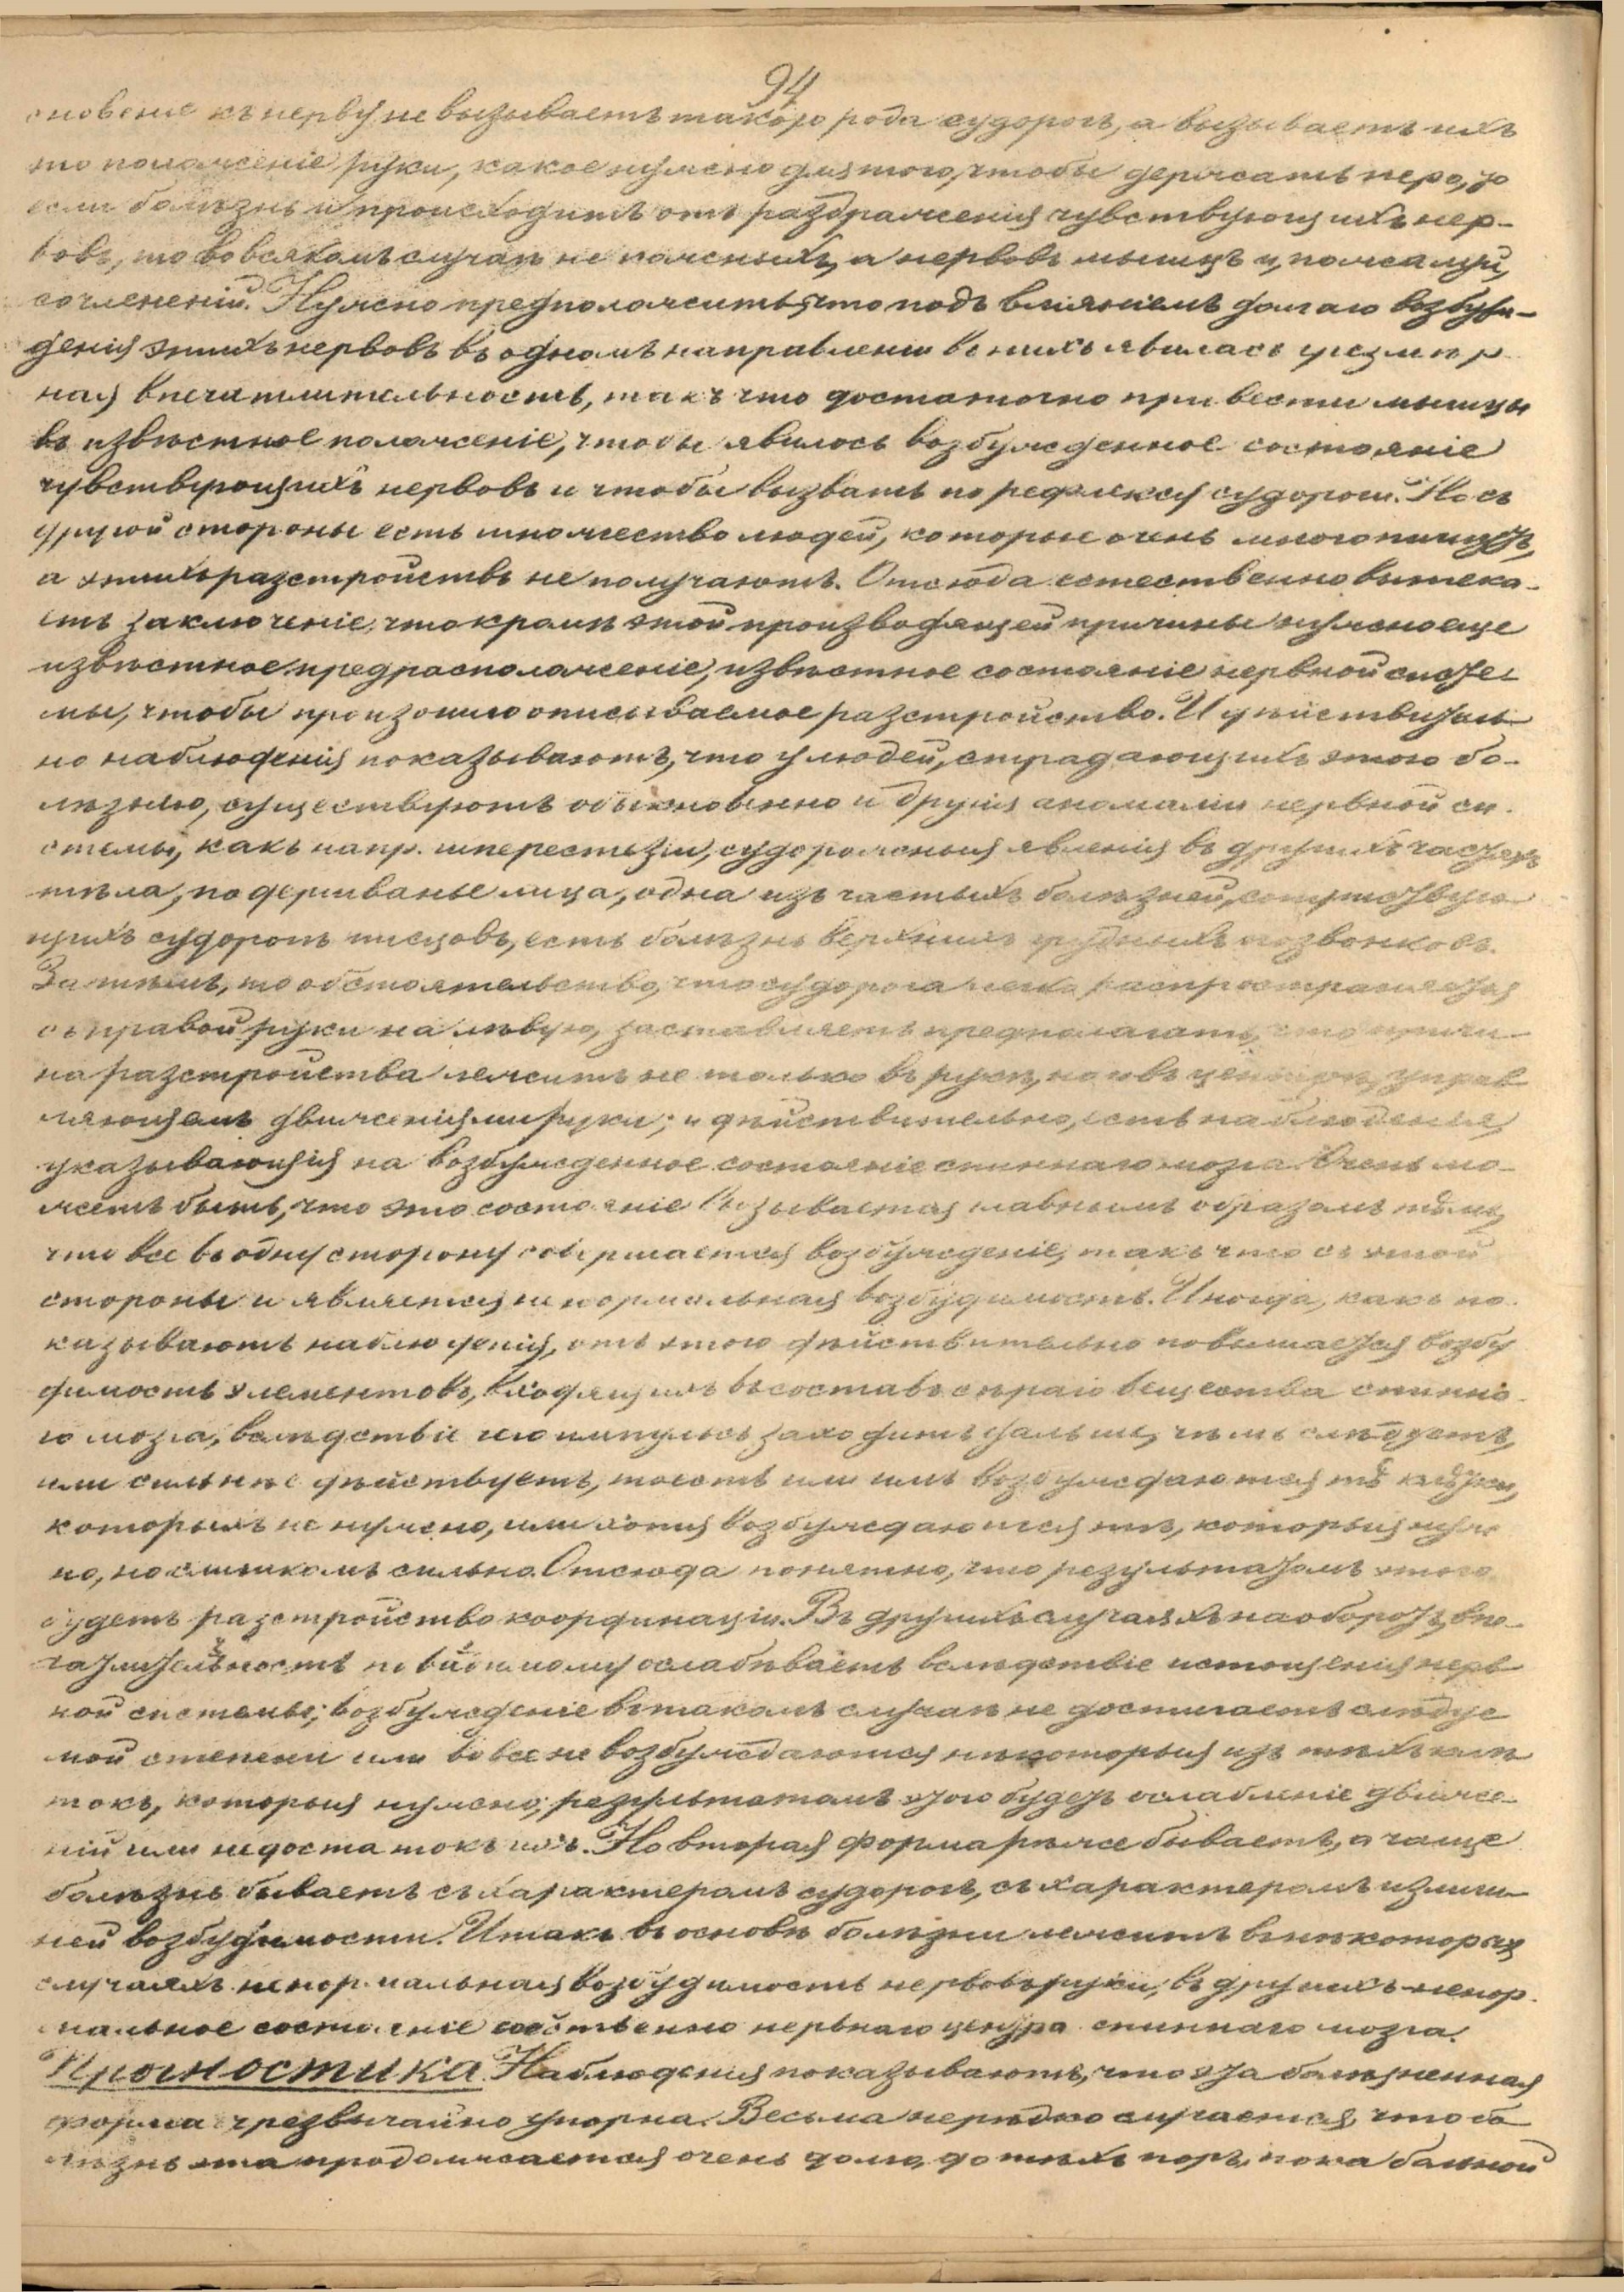 94
сновение къ нерву не вызываетъ такого рода судорогъ, а вызываетъ ихъ
то положеніе руки, какое нужно для того, чтобы держать перо, то
если болѣзнь и происходитъ отъ раздраженія чувствующихъ нер-
вовъ, то во всякомъ случаѣ не кожныхъ, а нервовъ мышцъ и, пожалуй,
сочлененій. Нужно предположить, что подъ вліяніемъ долгаго возбуж-
денія этихъ нервовъ въ одномъ направленіи въ нихъ явилась чрезмѣр
ная впечатлительность, такъ что достаточно привести мышцы
въ извѣстное положеніе, чтобы явилось возбужденное состояніе
чувствующихъ нервовъ и чтобы вызвать по рефлексу судороги. Но съ
другой стороны есть множество людей, которые очень много пишутъ,
а этихъ разстройствъ не получаютъ. Отсюда естественно вытека-
етъ заключеніе, что кромѣ этой производящей причины нужно еще
извѣстное предрасположеніе, извѣстное состояніе нервной систе-
мы, чтобы произошло описываемое разстройство. И дѣйствитель-
но наблюденія показываютъ, что у людей, страдающихъ этою бо-
лѣзнью, существуютъ обыкновенно и другія аномаліи нервной си-
стемы, какъ напр. гиперестезіи, судорожныя явленія въ другихъ частяхъ
тѣла, подергиванье лица, одна изъ частыхъ болѣзней, сопутствую
щихъ судорогѣ писцовъ, есть болѣзнь верхнихъ грудныхъ позвонковъ.
Затѣмъ, то обстоятельство, что судорога легко распространяется
съ правой руки на лѣвую, заставляетъ предполагать, что причи-
на разстройства лежитъ не только въ рукѣ, но и въ центрѣ, управ
ляющемъ движеніями руки; и дѣйствительно, есть наблюденія,
указывающія на возбужденное состояніе спиннаго мозга. Очень мо-
жетъ быть, что это состояніе вызывается главнымъ образомъ тѣмъ,
что все въ одну сторону совершается возбужденіе, такъ что съ этой
стороны и является ненормальная возбудимость. Иногда, какъ по-
казываютъ наблюденія, отъ этого дѣйствительно повышается возбу
димость элементовъ, входящихъ въ составъ сѣраго вещества спинна-
го мозга, вслѣдствіе чего импульсъ заходитъ дальше, чѣмъ слѣдуетъ,
или сильнѣе дѣйствуетъ, то есть или имъ возбуждаются тѣ клѣтки,
которыхъ не нужно, или хотя возбуждаются тѣ, которыя нуж
но, но слишкомъ сильно. Отсюда понятно, что результатомъ этого
будетъ разстройство координаціи. Въ другихъ случаяхъ наоборотъ, впе-
чатлительность по видимому ослабѣваетъ вслѣдствіе истощенія нерв
ной системы; возбужденіе въ такомъ случаѣ не достигаетъ слѣдуе
мой степени или вовсе не возбуждаются нѣкоторыя изъ тѣхъ клѣ
токъ, которыя нужно; результатомъ этого будетъ ослабленіе движе-
ній или недостатокъ ихъ. Но вторая форма рѣже бываетъ, а чаще
болѣзнь бываетъ съ характеромъ судорогъ, съ характеромъ излиш-
ней возбудимости. Итакъ въ основѣ болѣзни лежитъ въ нѣкоторыхъ
случаяхъ ненормальная возбудимость нервовъ руки, въ другихъ-ненор
мальное состояніе собственно нервнаго центра спиннаго мозга.
Прогностика. Наблюденія показываютъ, что эта болѣзненная
форма чрезвычайно упорна. Весьма нерѣдко случается, что бо
лѣзнь эта продолжается очень долго, до тѣхъ поръ, пока больной